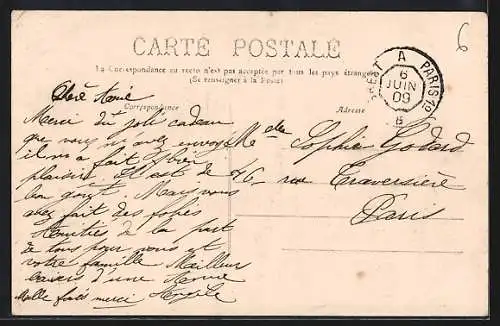 CARTE POSTALE
La Correspondance au recto n'est pas acceptée par tous les pays étrangers
(Se renseigner à la Poste)
Correspondance
Adresse
6
BREST A PARIS
6
JUIN
09
Chère Amie
Merci du joli cadeau
que vous m'avez envoyé
il m'a fait bien
plaisir. Il est de
bon goût.
avez fait des folies
de la part
de tous pour vous et
votre famille Meilleur
baisers d'une Amie
Mille fois merci
Melle Sophie Godard
76 rue Traversière
Paris